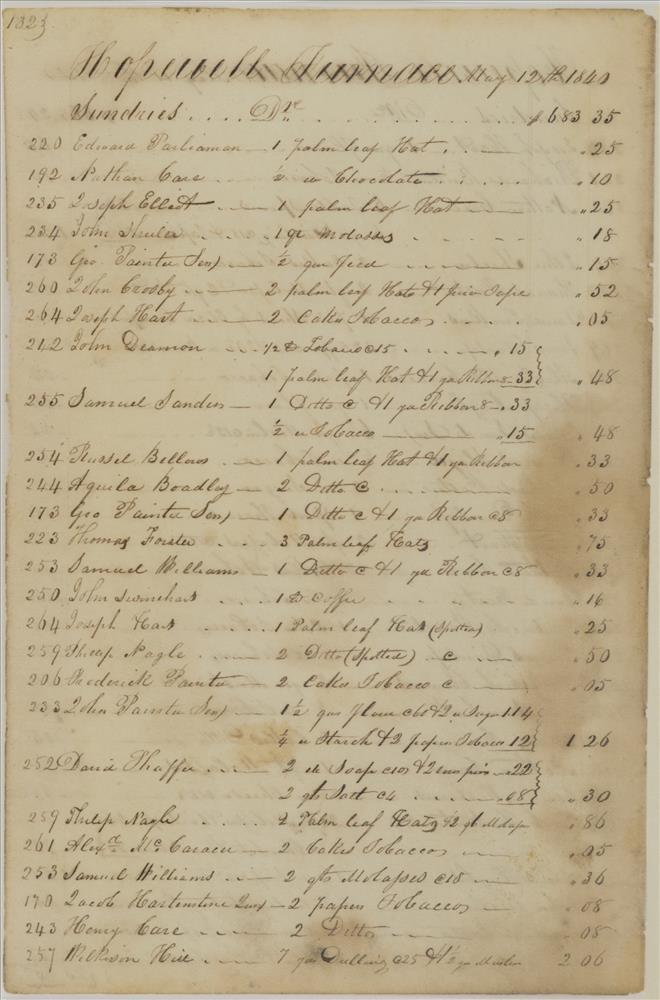 1323
Hopewell Furnace May 12th 1840
Sundries .... Drs ........ $683 35
220 Edward Parliaman — 1 palm leaf Hat . — „ 25
192 Nathan Care — Chocolate .... „ 10
235 Joseph Elliot — 1 palm leaf Hat — „ 25
234 John Shuler .. 1 qt Molasses .... „ 18
173 Geo Painter Senr — ½ Feed — „ 15
260 John Crosby — 2 palm leaf Hats &1 „ 52
264 Joseph Hart — 2 Cakes Tobacco .... „ 05
242 John Deamon .. 1/2 lb Tobacco c15 .... „ 15
1 palm leaf Hat &1 yd Ribbon 8 „ 33 „ 48
255 Samuel Sanders — 1 Ditto c &1 yd Ribbon 8 „ 33
½ „ Tobacco — „ 15 „ 48
254 Russel Bellows . — 1 palm leaf Hat &1 yd Ribbon „ 33
244 Aquila Boadley — 2 Ditto c .... „ 50
173 Geo Painter Senr — 1 Ditto c &1 yd Ribbon c8 „ 33
223 Thomas Forster .... 3 Palm leaf Hats „ 75
253 Samuel Williams — 1 Ditto c &1 yd Ribbon c8 „ 33
250 John Swinehart .. 1 lb Coffee .... „ 16
264 Joseph Hart .... 1 Palm leaf Hat (Spotted) „ 25
259 Philip Nagle . — 2 Ditto (Spotted) c — „ 50
206 Frederick Painter — 2 Cakes Tobacco c — „ 05
233 John Painter Senr — 1½ Flour &2 „ Sugar 1.14
¼ „ Starch &2 papers Tobacco 12 1 26
252 David Shaffer .. — 2 „ Soap c10 &2 „ 22
2 qts Salt c4 .... „ 08 „ 30
259 Philip Nagle .... 2 Palm leaf Hats &2 qts Molasses „ 86
261 Alexd Mc — 2 Cakes Tobacco — „ 05
253 Samuel Williams . — 2 qts Molasses c18 — „ 36
170 Jacob Hartenstine Junr — 2 papers Tobacco — „ 08
243 Henry Care — 2 Ditto — „ 08
257 Wilkison — 7 yds c25 &1½ yds Muslin 2 06